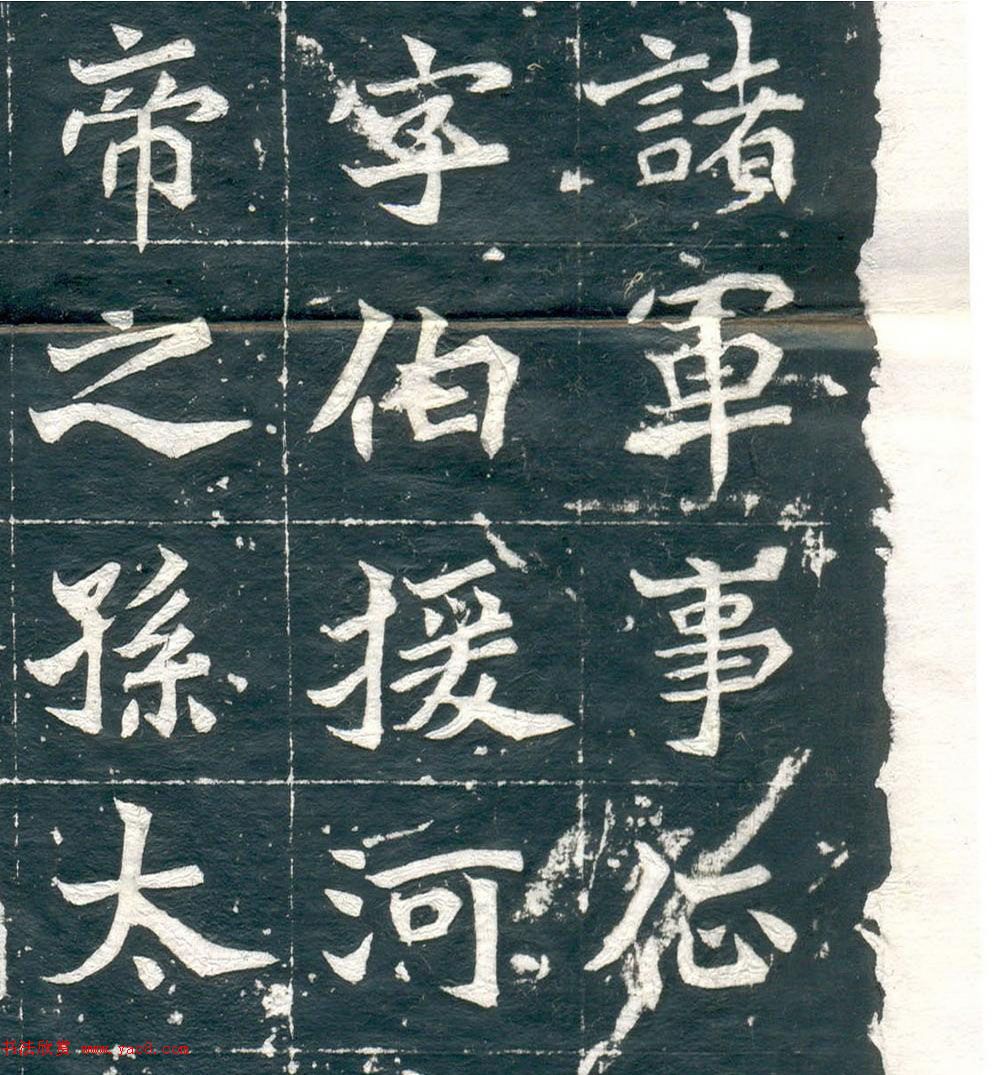 諸軍事
字伯援河
帝之孫太
书法欣赏 www.yac8.com